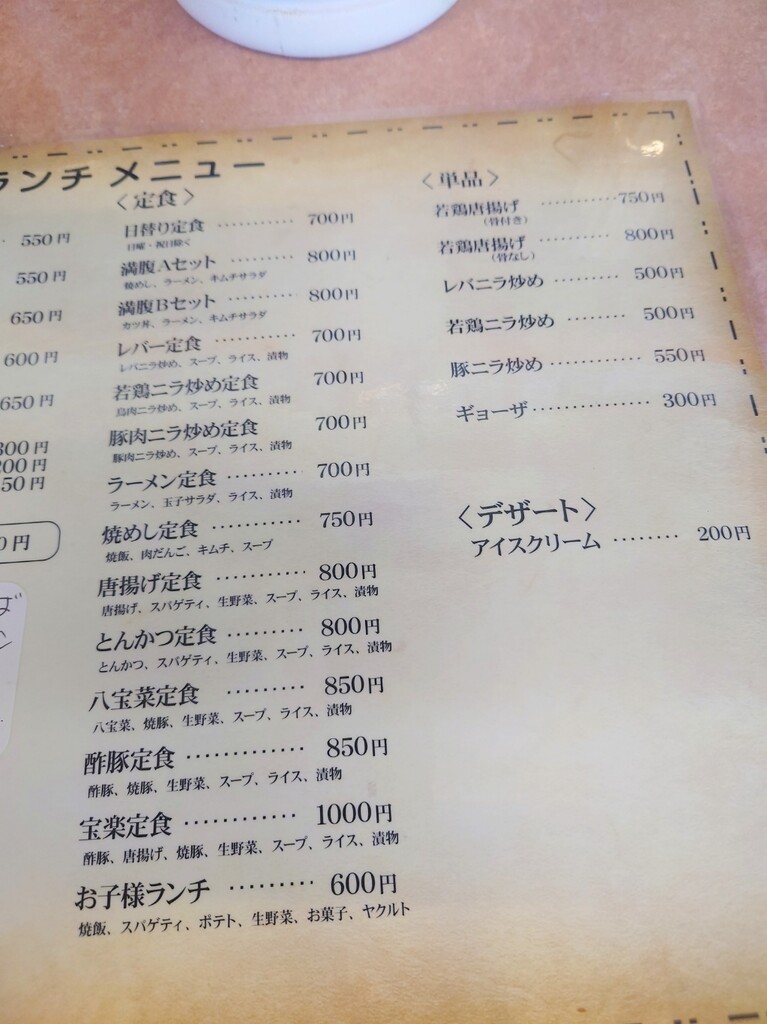 ランチ メニュー
550円
550円
650円
600円
650円
300円
200円
50円
0円
〈定食〉
日替り定食 ………… 700円
日曜・祝日除く
満腹Aセット ………… 800円
焼めし、ラーメン、キムチサラダ
満腹Bセット ………… 800円
カツ丼、ラーメン、キムチサラダ
レバー定食 ………… 700円
レバニラ炒め、スープ、ライス、漬物
若鶏ニラ炒め定食 700円
鳥肉ニラ炒め、スープ、ライス、漬物
豚肉ニラ炒め定食 700円
豚肉ニラ炒め、スープ、ライス、漬物
ラーメン定食 ………… 700円
ラーメン、玉子サラダ、ライス、漬物
焼めし定食 ………… 750円
焼飯、肉だんご、キムチ、スープ
唐揚げ定食 ………… 800円
唐揚げ、スパゲティ、生野菜、スープ、ライス、漬物
とんかつ定食 ……… 800円
とんかつ、スパゲティ、生野菜、スープ、ライス、漬物
八宝菜定食 ……… 850円
八宝菜、焼豚、生野菜、スープ、ライス、漬物
酢豚定食 ………… 850円
酢豚、焼豚、生野菜、スープ、ライス、漬物
宝楽定食 ………… 1000円
酢豚、唐揚げ、焼豚、生野菜、スープ、ライス、漬物
お子様ランチ ……… 600円
焼飯、スパゲティ、ポテト、生野菜、お菓子、ヤクルト
〈単品〉
若鶏唐揚げ ………… 750円
(骨付き)
若鶏唐揚げ ………… 800円
(骨なし)
レバニラ炒め ……… 500円
若鶏ニラ炒め ……… 500円
豚ニラ炒め ………… 550円
ギョーザ …………… 300円
〈デザート〉
アイスクリーム ……… 200円